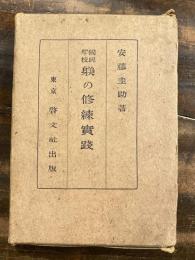 安藤圭助著
國民
學校
躾の修練實踐
東京 啓文社出版